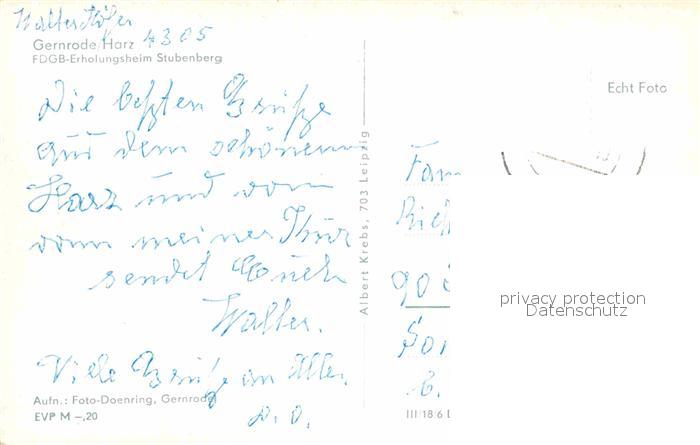 Walter
Gernrode/Harz 4305
FDGB-Erholungsheim Stubenberg
Echt Foto
Die letzten Grüße
aus dem schönen
Harz und vom
vom meiner
sendet Euch
Walter.
Viele Grüße an Alle.
D. O.
Aufn.: Foto-Doenring, Gernrode
EVP M –,20
Albert Krebs, 703 Leipzig
Fam
90
privacy protection
Datenschutz
III 18 6